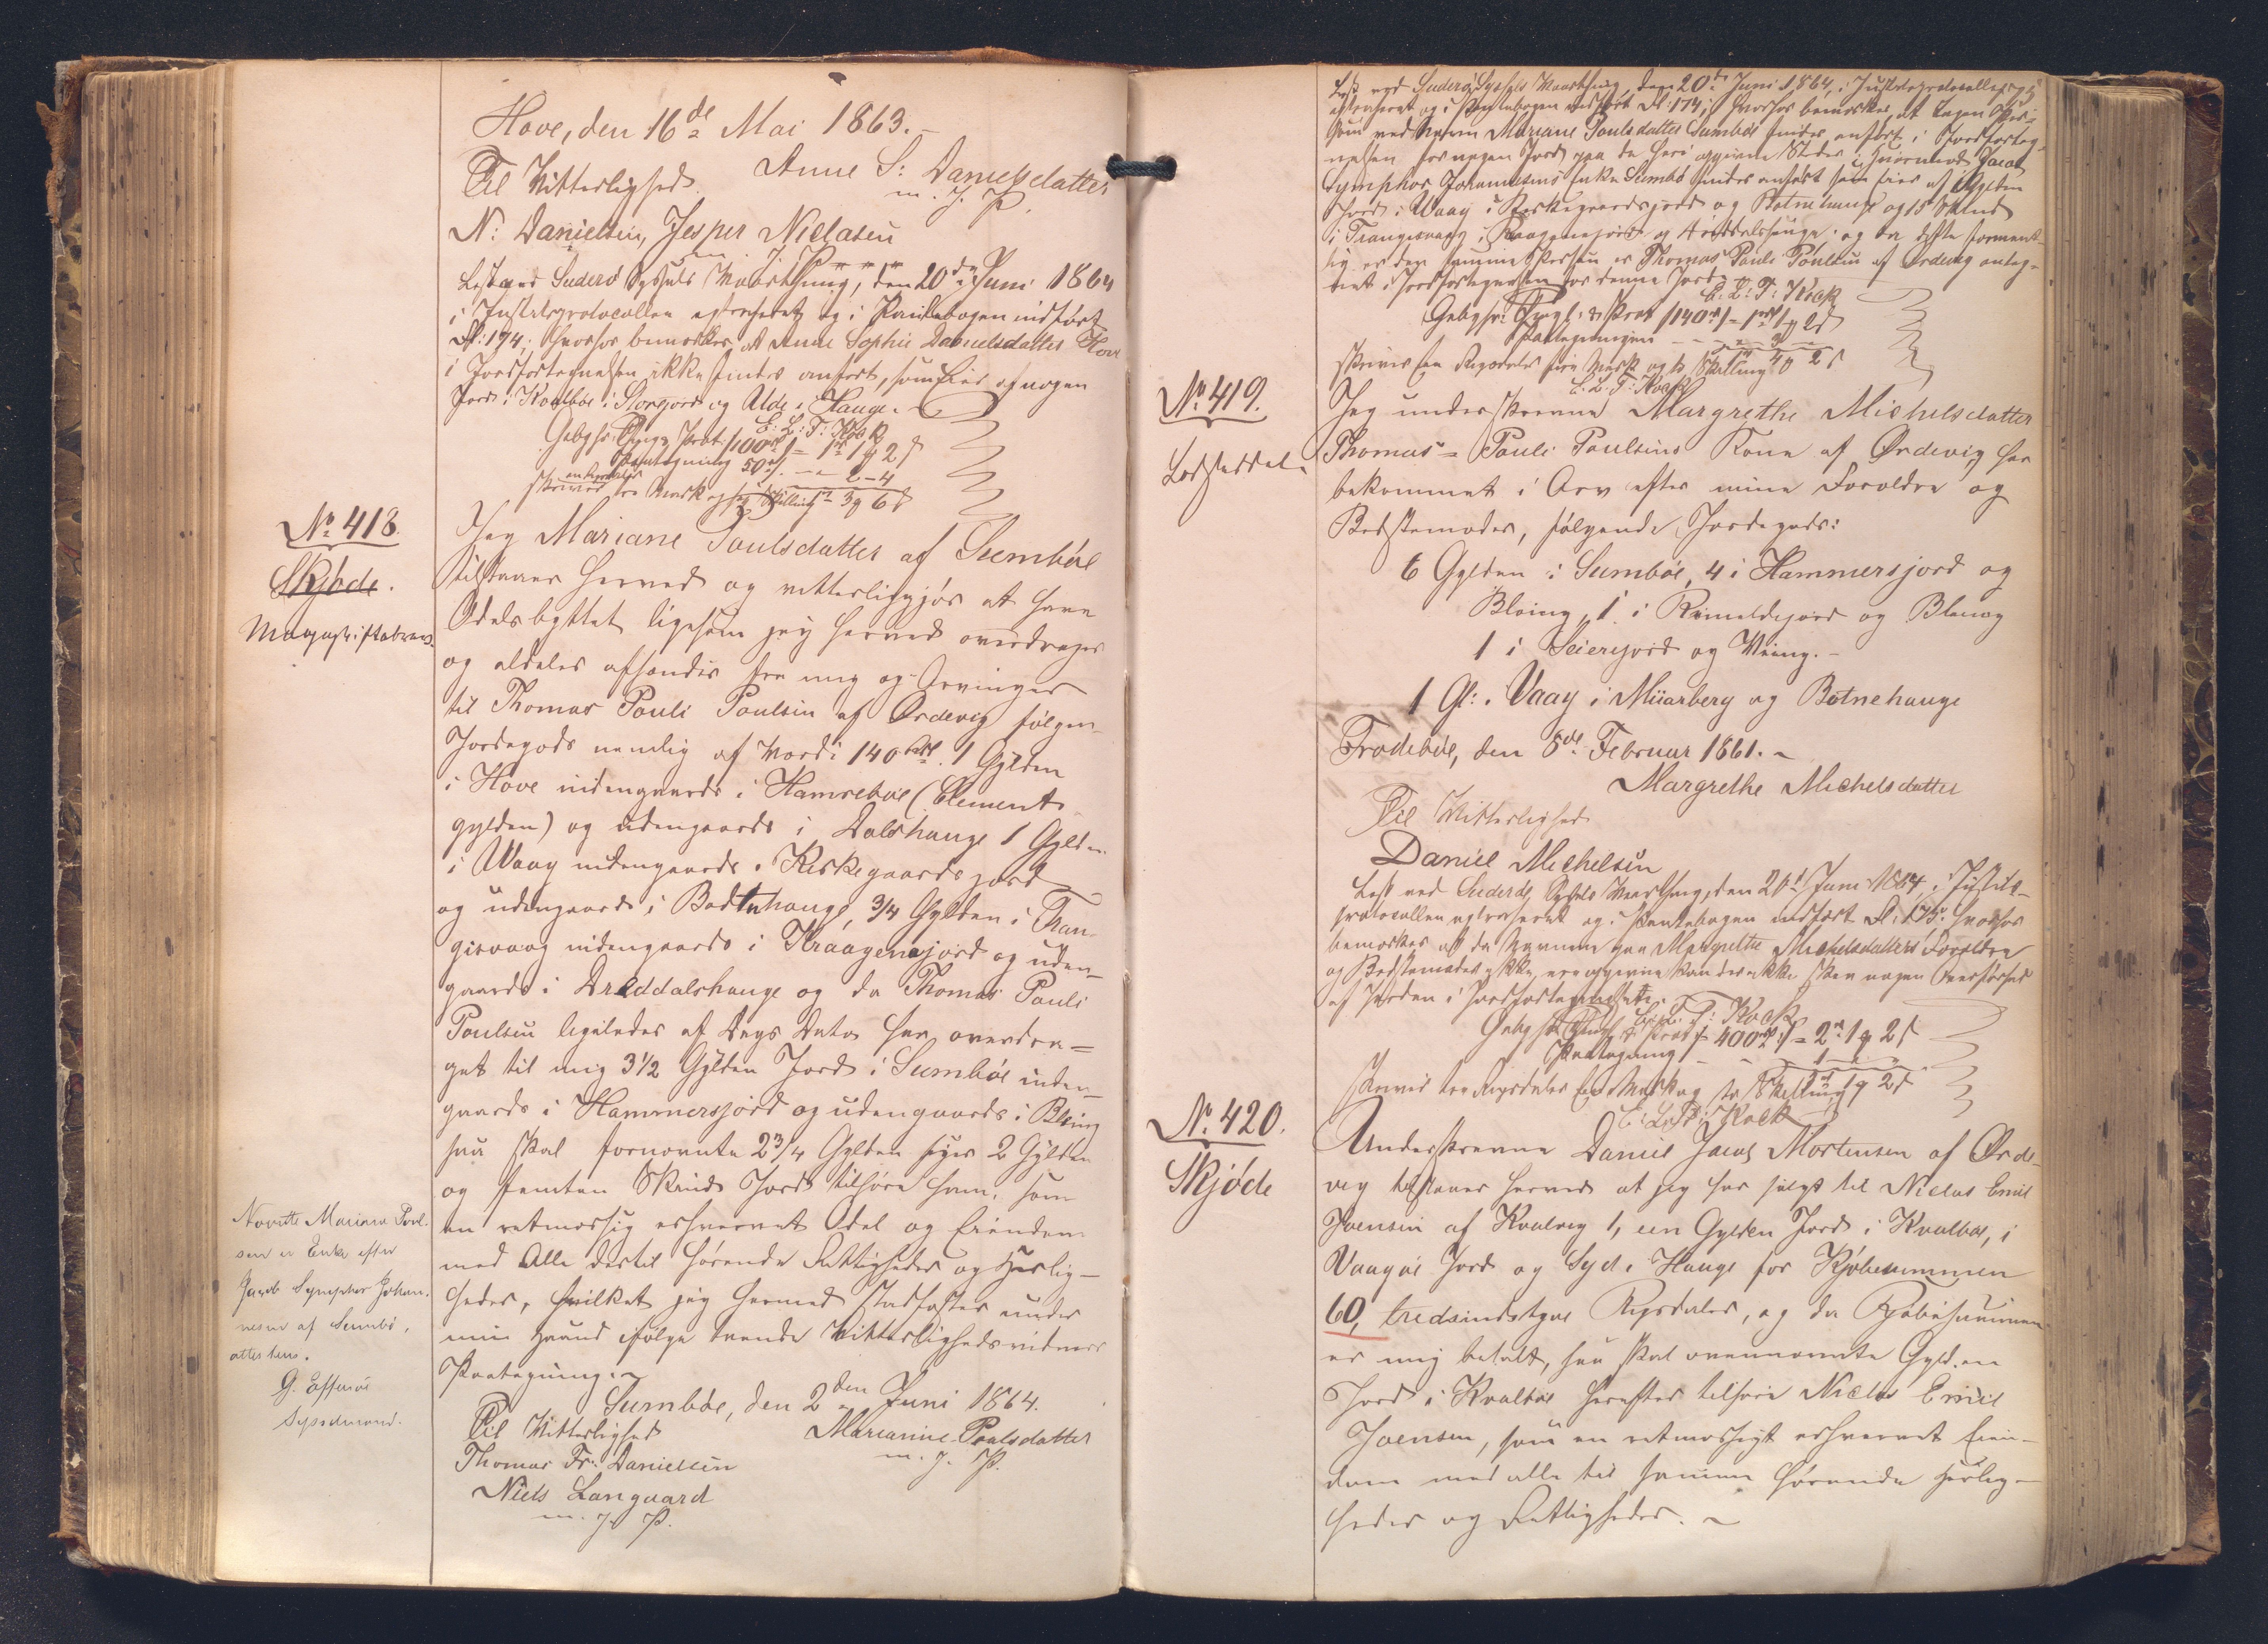 Hove, den 16de Mai 1863.-
Til Vitterlighed. Anne S: Danielsdatter
m. f. P.
N: Danielsen, Jesper Niclasen
m. f. P.
Læst ved Suderø Syssels Vaarthing, den 20de Juni 1864
i Justitsprotocollen extraheret og i Pantebogen indført
Fl: 174; hvorhos bemærkes, at Anne Sophie Danielsdatter Hove
i Jordfortegnelsen ikke findes anført, som Eier af nogen
Jord i Kvalbøe i Storejord og Alde i Hauge.
E: L: T: Kock
100 rd 1 rd 1 y 2 s
Paategning 50 rd - - 2 - 4
3 y 6 s
No 418.
Skjøde.
Mageskiftebrev.
Jeg Mariane Poulsdatter af Sumbøe
tilstaaer herved og vitterliggjør at have
Odelsbyttet ligesom jeg herved overdrager
og aldeles afhænder fra mig og Arvinger
til Thomas Pouli Poulsen af Ørdevig følgen-
Jordegods nemlig af Værdi 140 rd. 1 Gylden
i Hove indengaards i Hamrebøe (Clements-
gylden) og udengaards i Dalshauge 1 Gylden
i Waag indengaards i Kirkegaardsjord
og udengaards i Botnhauge, 3/4 Gylden i Tran-
gisvaag indengaards i Kraagenajord og uden-
gaards i Dræddalshauge og da Thomas Pouli
Poulsen ligeledes af Dags Dato har overdra=
get til mig 3 1/2 Gylden Jord i Sumbøe inden-
gaards i Hammersjord og udengaards i Bleing
saa skal fornævnte 2 3/4 Gylden siger 2 Gylden
og femten Skind Jord tilhøre ham, som
en retmæssig erhvervet Odel og Eiendom
med Alle dertil hørende Rettigheder og Herlig-
heder, hvilket jeg hermed stadfæster under
min Haand ifølge tvende Vitterlighedsvidners
Paategning.-
Sumbøe, den 2den Juni 1864.
Til Vitterlighed Marianne Poulsdatter
m. f. P.
Thomas Fr: Danielsen
Niels Langgaard
m. f. P.
Nævnte Mariane Poul-
sen er Enke efter
Jacob Symphor Johan-
nesen af Sumbø,
attesteres.
G. Effersøe
Sysselmand.
Læst ved Suderø Syssels Vaarthing, den 20de Juni 1864, i Justitsprotocollen
extraheret og i Pantebogen indført Fl: 174; hvorhos bemærkes, at ingen Per-
son ved Navn Mariane Poulsdatter Sumbøe findes anført i Jordforteg-
nelsen for nogen Jord paa de heri opgivne Steder, hvorimod Jacob
Symphor Johannesens Enke Sumbø findes anført som Eier af 1 Gylden
Jord i Waag i Kirkegaardsjord og Botnehauge og 15 Skind
i Trangisvaag i Kraagenajord og Drøddalshauge; og da dette forment-
lig er den samme Person er Thomas Pouli Poulsen af Ørdevig anteg-
net i Jordfortegnelsen for denne Jord.
E: L: T: Kock
140 rd = 1 rd 1 y 2 s
Paategningen
skriver Een Rigsdaler fire Mark og to Skilling 4 y 2 s
E: L: T: Kock
No 419.
Lodseddel.
Jeg underskrevne Margrethe Michelsdatter
Thomas= Pouli Poulsens Kone af Ørdevig har
bekommet i Arv efter mine Forældre og
Bedstemoder, følgende Jordegods:
6 Gylden i Sumbøe, 4 i Hammersjord og
Bleing, 1 i Rimeldejord og Blenag
1 i Seierjord og Veing.-
1 Gl: i Vaag i Müarberg og Botnehauge
Frodebøe, den 8de Februar 1861.-
Margrethe Michelsdatter
Til Vitterlighed
Daniel Michelsen
Læst ved Suderø Syssels Vaarthing, den 20de Juni 1864, i Justits-
protocollen extraheret og i Pantebogen indført Fl: 175; hvorhos
bemærkes at da Navnene paa Margrethe Michelsdatters Forældre
og Bedstemoder ikke ere opgivne kan der ikke skee nogen Overførsel
af Jorden i Jordfortegnelsen.
E: L: T: Kock
400 rd = 2 rd 1 y 2 s
Paategning
skriver tre Rigsdaler een Mark og to Skilling 1 y 2 s
E: L: T: Kock
No 420.
Skjøde
Underskrevne Daniel Jacob Mortensen af Ørde-
vig tilstaaer herved at jeg har solgt til Niclas Emil
Joensen af Kvalvig 1, een Gylden Jord i Kvalbøe, i
Vaagøe Jord og Syd i Hauge for Kjøbesummen
60, tredsindstyve Rigsdaler, og da Kjøbesummen
er mig betalt, saa skal ovennævnte Gylden
Jord i Kvalbøe herefter tilhøre Niclas Emil
Joensen, som en retmæssigt erhvervet Eien-
dom med alle til samme hørende Herlig-
heder og Rettigheder.-